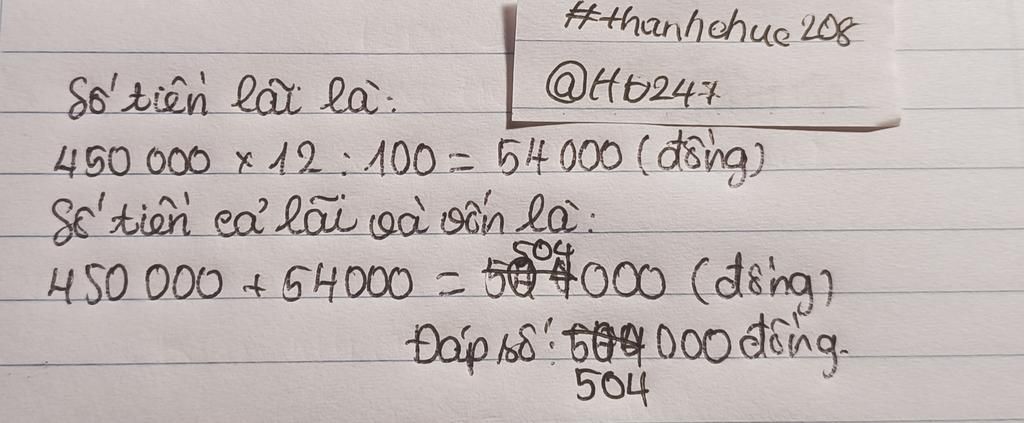 #thanhchuc208
@Ht247
Số tiền lãi là:
450 000 × 12 : 100 = 54 000 (đồng)
Số tiền cả lãi và vốn là:
504
450 000 + 54000 = 000 (đồng)
Đáp số: 000 đồng.
504